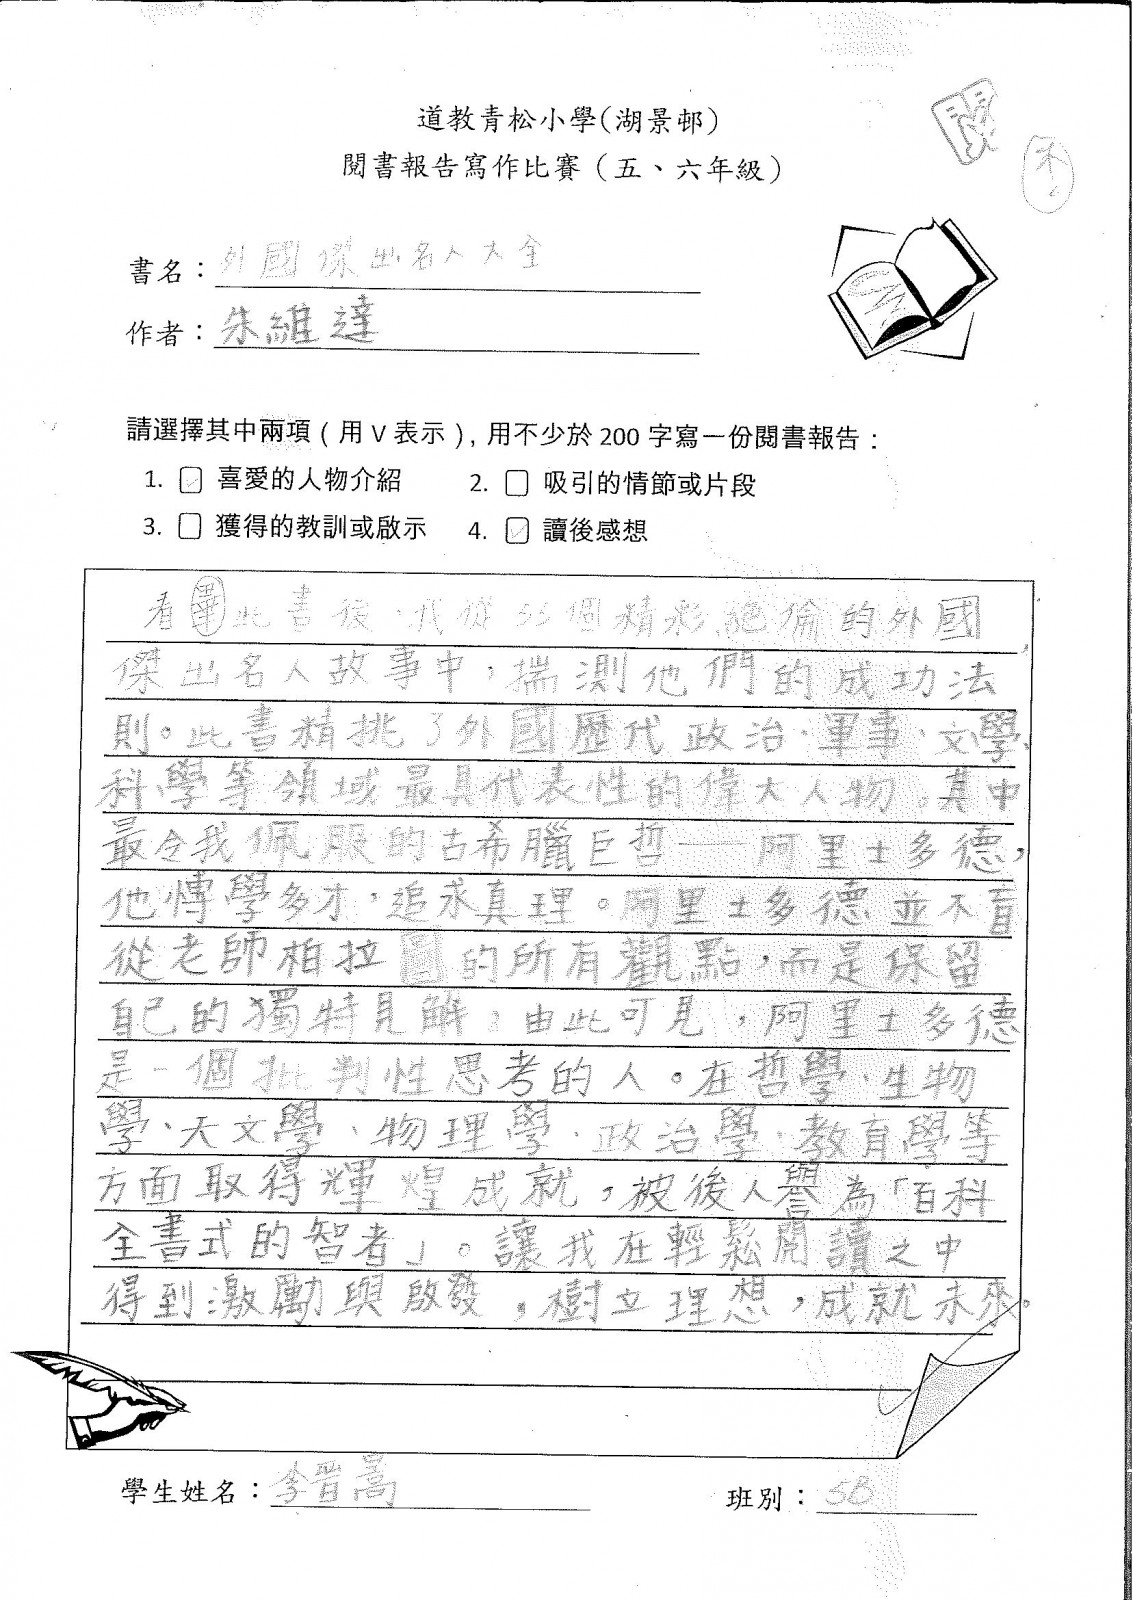 道教青松小學(湖景邨)
閱書報告寫作比賽（五、六年級）
書名：外國傑出名人大全
作者：朱維達
請選擇其中兩項（用V表示），用不少於200字寫一份閱書報告：
1. ☑ 喜愛的人物介紹 2. ☐ 吸引的情節或片段
3. ☐ 獲得的教訓或啟示 4. ☑ 讀後感想
看畢此書後，我從55個精彩絕倫的外國
傑出名人故事中，揣測他們的成功法
則。此書精挑了外國歷代政治、軍事、文學、
科學等領域最具代表性的偉大人物。其中
最令我佩服的古希臘巨哲——阿里士多德，
他博學多才，追求真理。阿里士多德並不盲
從老師柏拉圖的所有觀點，而是保留
自己的獨特見解，由此可見，阿里士多德
是一個批判性思考的人。在哲學、生物
學、天文學、物理學、政治學、教育學等
方面取得輝煌成就，被後人譽為「百科
全書式的智者」。讓我在輕鬆閱讀之中
得到激勵與啟發，樹立理想，成就未來。
學生姓名：李晉嵩 班別：5B